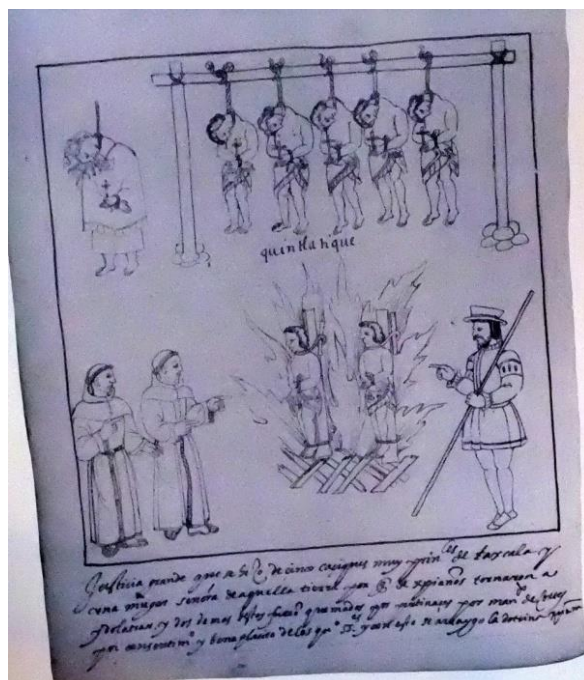 quintlatique
Justicia grande que se hiº de cinco caçiques muy prinˡᵉˢ de taxcala y
una muger señora de aquella tierra por q de xpianos tornaron a
ydolatrar, y dos demas destos fueron quemados por pertinaces por manᵈᵒ de Cortes
y por consentimᵒ y beneplacito de los quᵒ y con esto se arraygo la doctrina xpiana